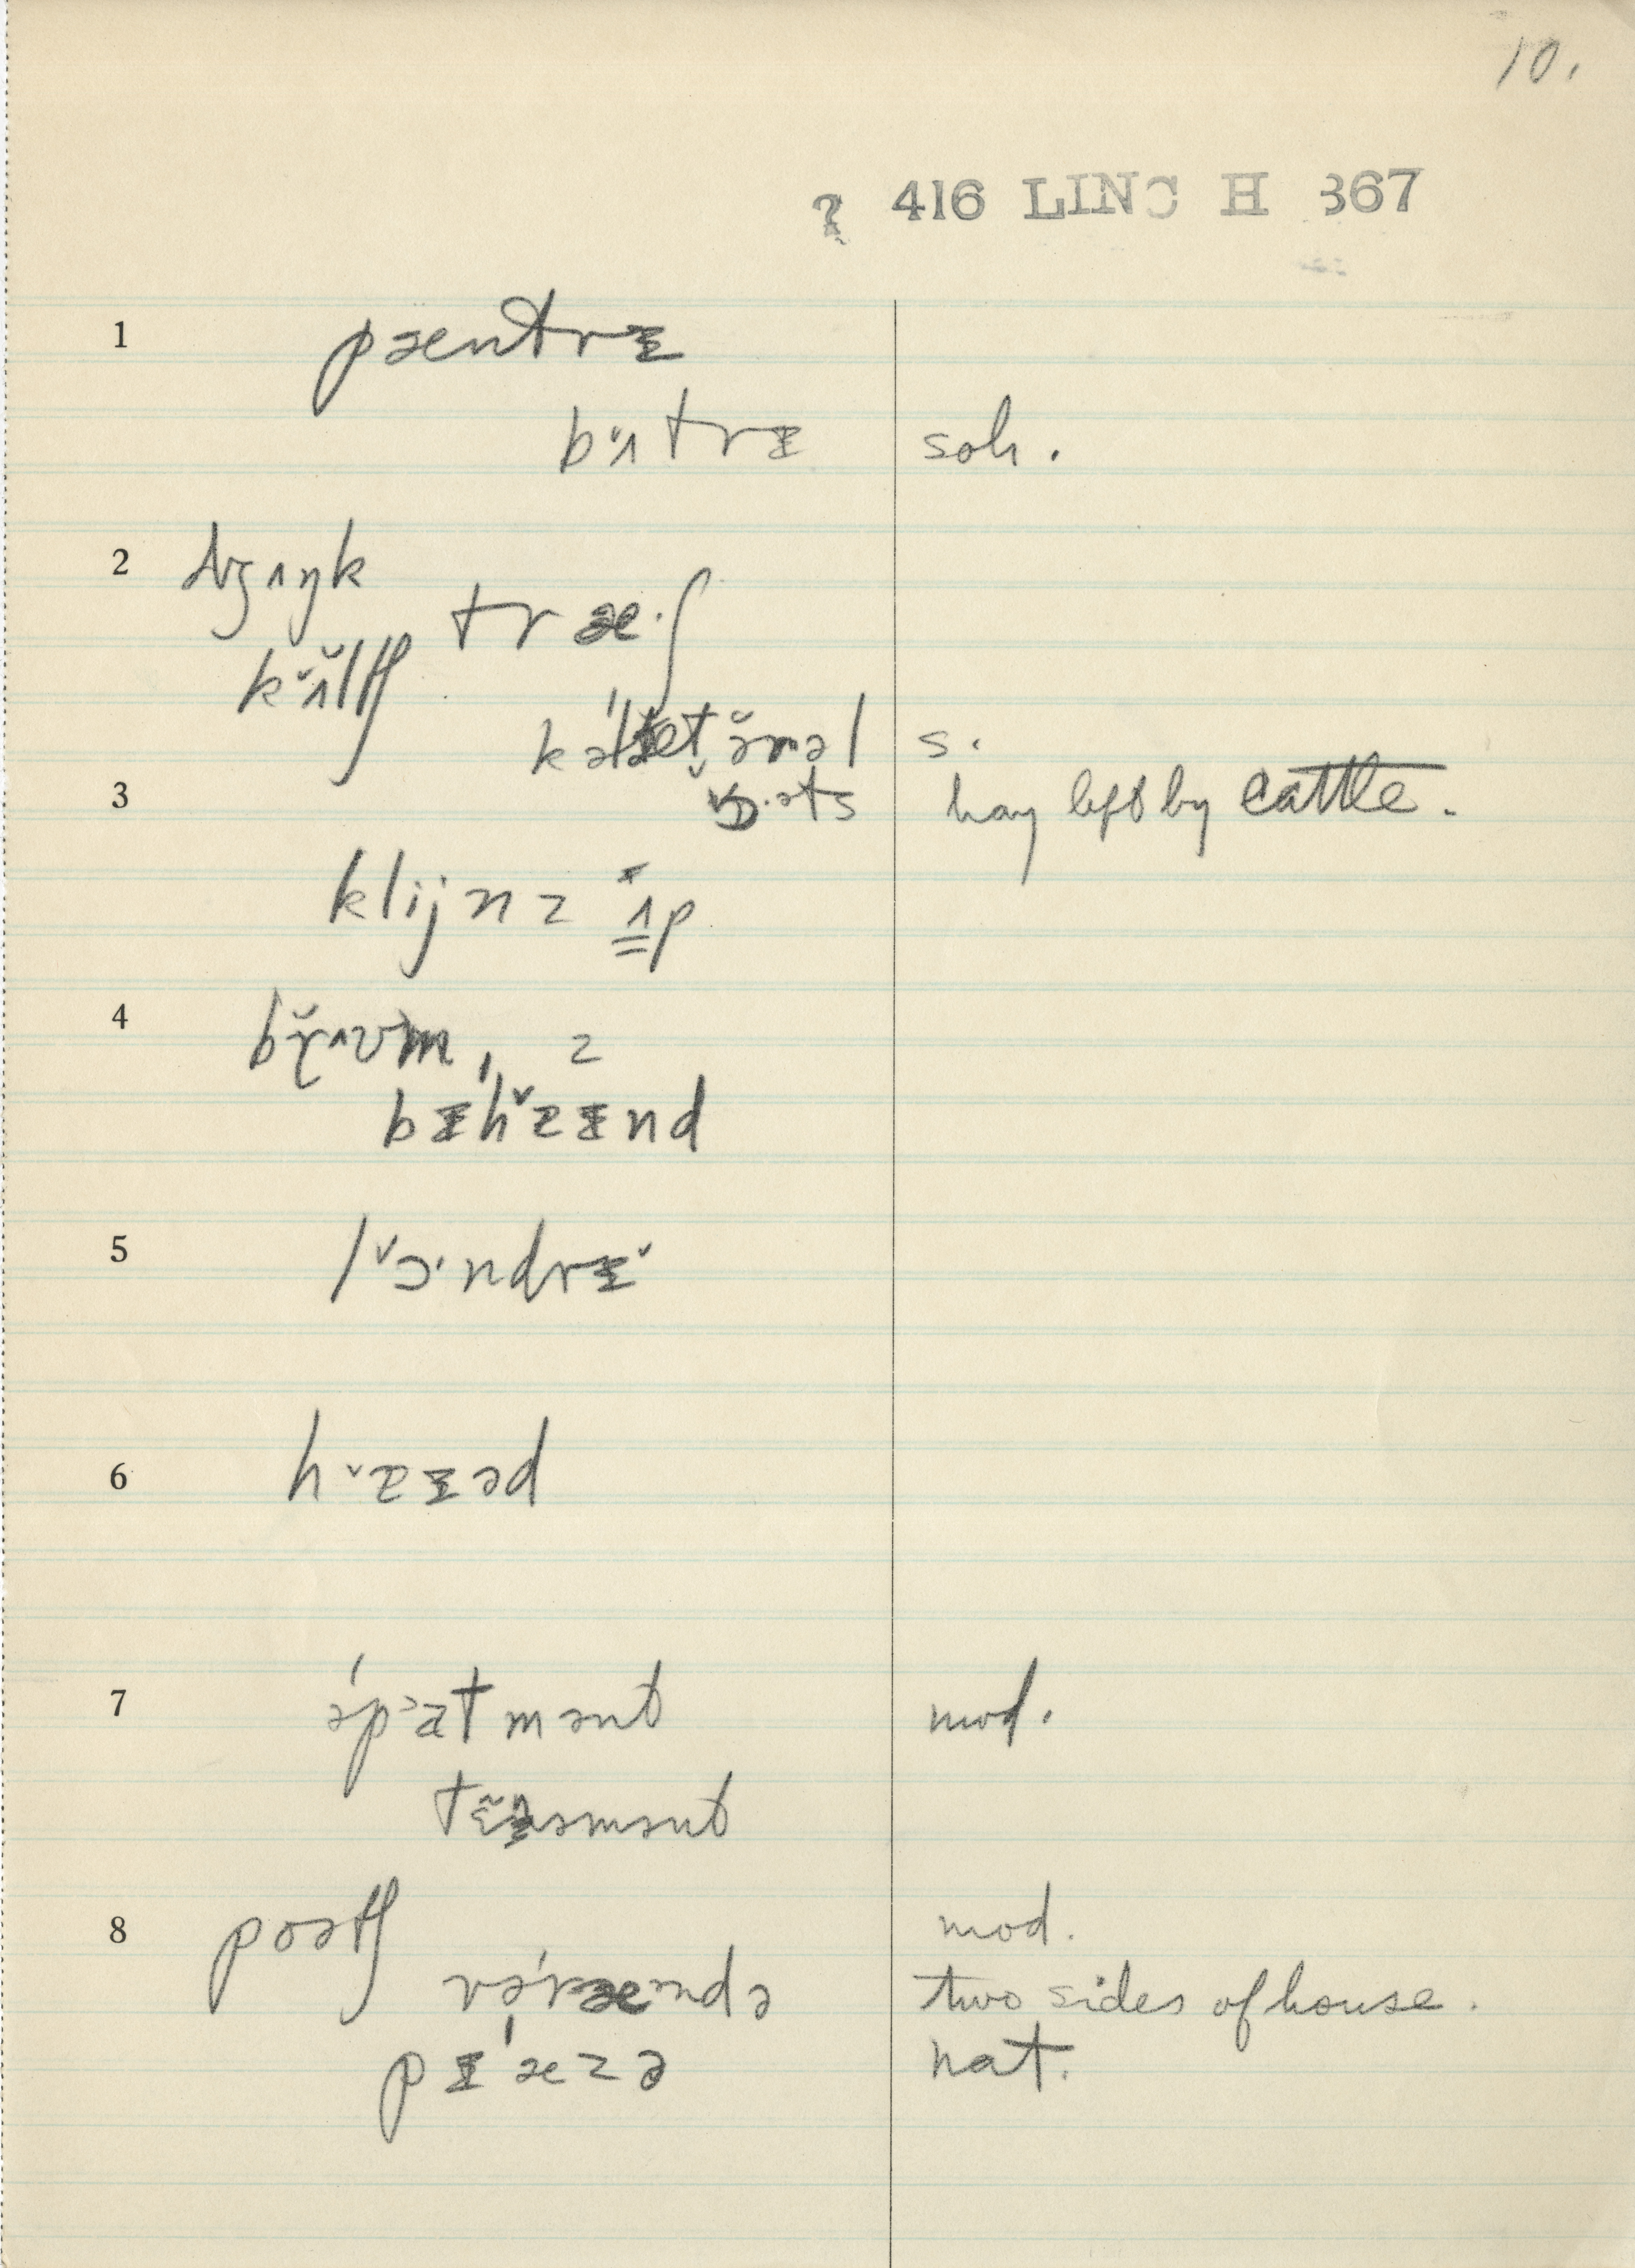 10.
? 416 LINC H 367
1 pæntrᵻ
bʌ̆trᵻ soh.
2 dʒʌŋk
kʌ̆ltʃ træ·ʃ
s.
3 ɔ·əts hay left by cattle.
klijnz ʌ̆p
4 brʌvm, z
bᵻhɐ̆ᵻnd
5 lɔ̆·ndrᵻ̆
6 hɐ̆ᵻəd
7 əpatmənt mod.
tɛnəmənt
8 poətʃ mod.
vərændə two sides of house.
pᵻæzə nat.